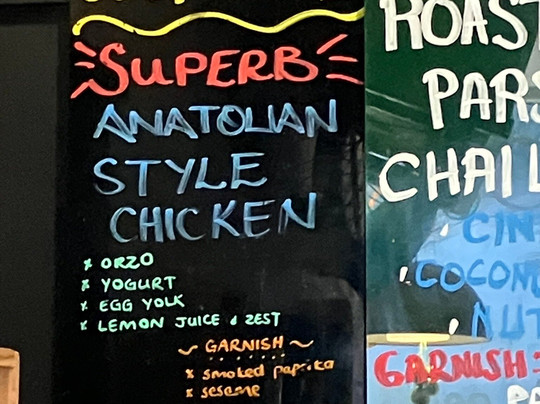 SUPERB
ANATOLIAN
STYLE
CHICKEN
* ORZO
* YOGURT
* EGG YOLK
* LEMON JUICE & ZEST
~ GARNISH ~
* smoked paprika
* sesame
ROAST
PARS
CHAIL
CIN
COCON
NUT
GARNISH:
PA